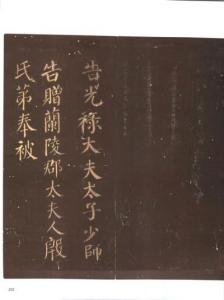 告光祿大夫太子少師
告贈蘭陵郡太夫人殷
氏第奉被